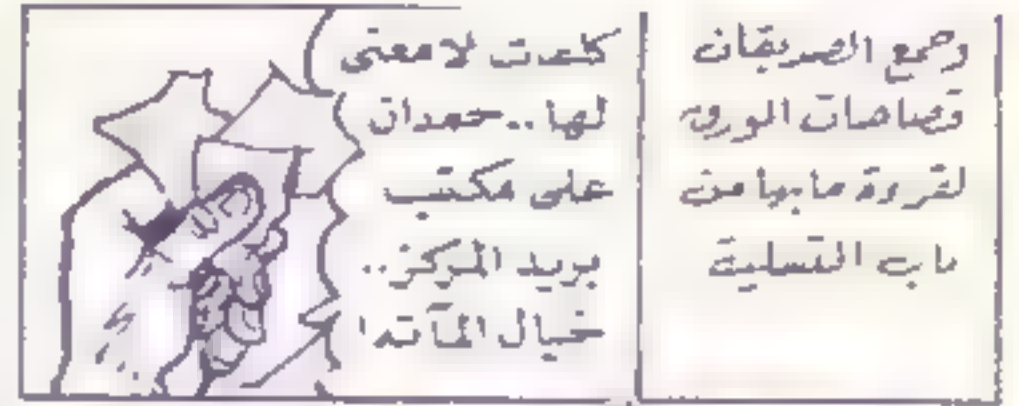 وجمع الصديقان
قصاصات الورق
لقراءة ما بها من
باب التسلية
كلمات لا معنى
لها .. حمدان
على مكتب
بريد المركز ..
خيال